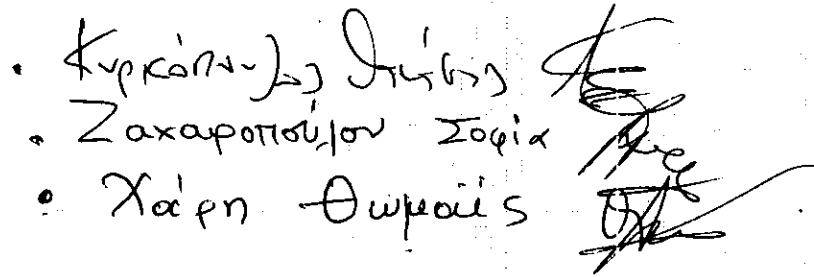 · Κυρκόπουλος
· Ζαχαροπούλου Σοφία
· Χάρη Θωμαΐς